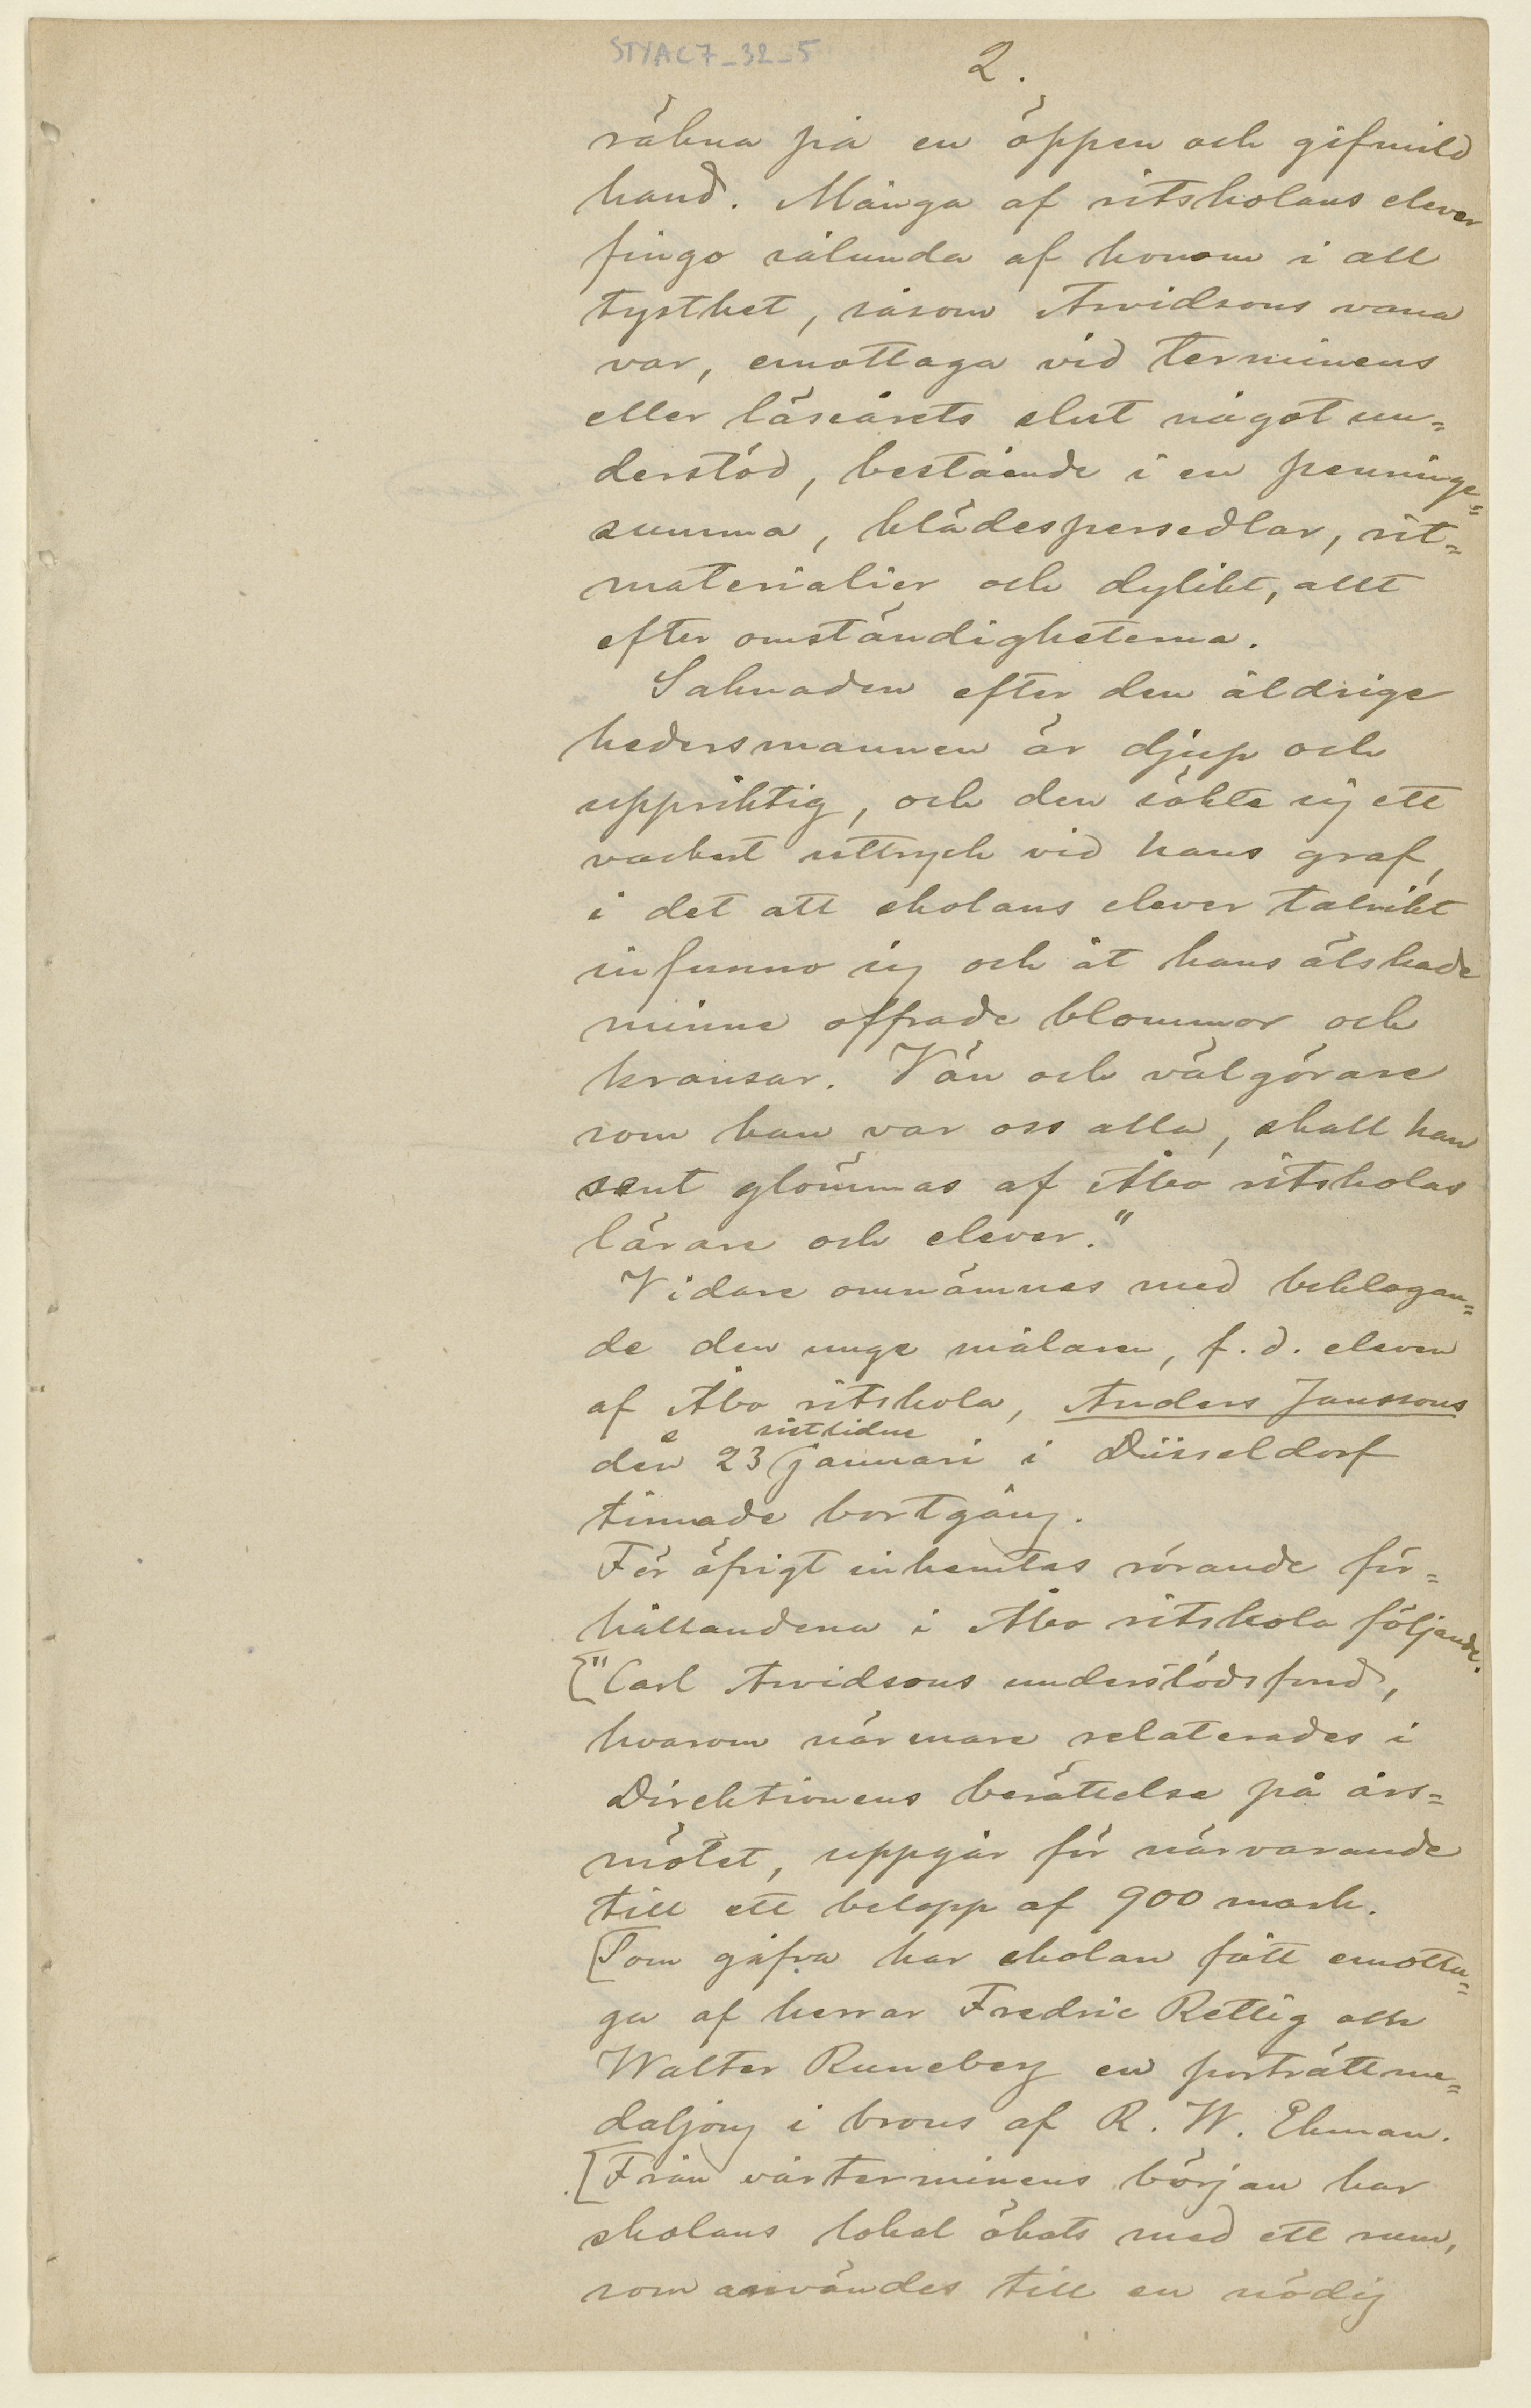 STYAC7_32_5
2.
räkna på en öppen och gifmild
hand. Många af ritskolans elever
fingo sålunda af honom i all
tysthet, såsom Arvidsons vana
var, emottaga vid terminens
eller läseårets slut något un=
derstöd, bestående i en penninge=
summa, klädespersedlar, rit=
materialier och dylikt, allt
efter omständigheterna.
Saknaden efter den åldrige
hedersmannen är djup och
uppriktig, och den sökte sig ett
vackert uttryck vid hans graf,
i det att skolans elever talrikt
infunno sig och åt hans älskade
minne offrade blommor och
kransar. Vän och välgörare
som han var oss alla, skall han
sent glömmas af Åbo ritskolas
lärare och elever."
Vidare omnämnes med beklagan=
de den unge målaren, f. d. eleven
af Åbo ritskola, Anders Janssons
sistlidne
den 23 januari i Düsseldorf
timade bortgång.
För öfrigt inhemtas rörande för=
hållandena i Åbo ritskola följande.
["Carl Arvidsons understödsfond,
hvarom närmare relaterades i
Direktionens berättelse på års=
mötet, uppgår för närvarande
till ett belopp af 900 mark.
[Som gåfva har skolan fått emotta=
ga af herrar Fredric Rettig och
Walter Runeberg en porträttme=
daljong i brons af R. W. Ekman.
[Från vårterminens början har
skolans lokal ökats med ett rum,
som användes till en nödig